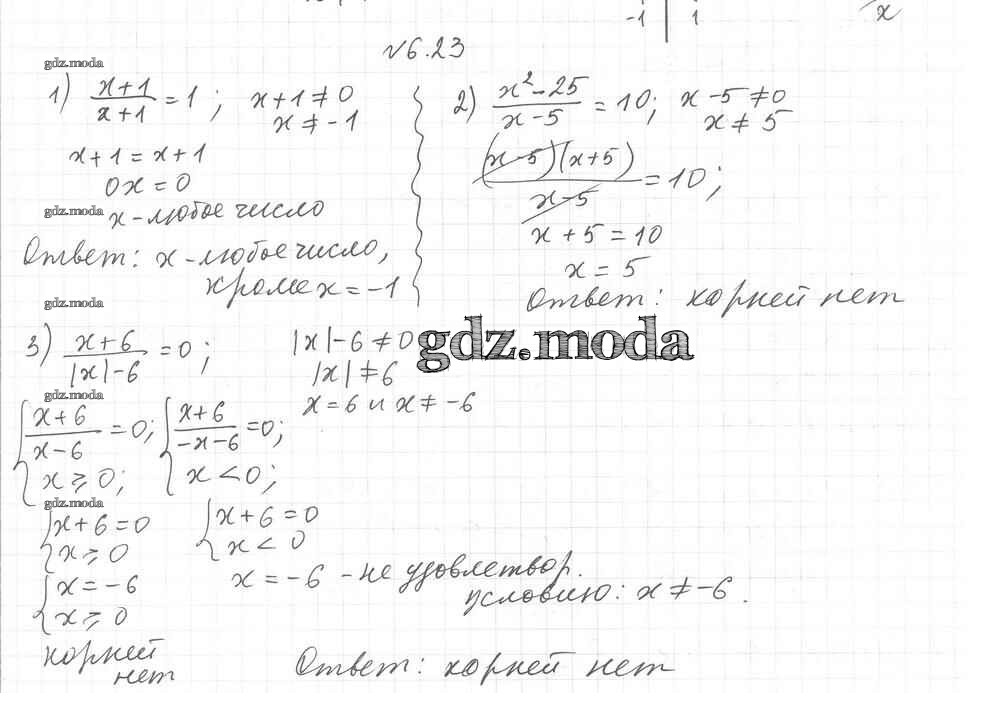 -1 | 1
x
№6.23
gdz.moda
1) (x+1)/(x+1) = 1; x+1≠0
x≠-1
x+1=x+1
0x=0
gdz.moda
x-любое число
Ответ: x-любое число,
кроме x=-1
2) (x²-25)/(x-5) = 10; x-5≠0
x≠5
((x-5)(x+5))/(x-5) = 10;
x+5=10
x=5
Ответ: корней нет
gdz.moda
gdz.moda
3) (x+6)/(|x|-6) = 0; |x|-6≠0
|x|≠6
x=6 и x≠-6
gdz.moda
{(x+6)/(x-6) = 0; {(x+6)/(-x-6) = 0;
x≥0; x<0;
gdz.moda
{x+6=0 {x+6=0
x≥0 x<0
{x=-6 x=-6 -не удовлетвор.
x≥0 условию: x≠-6.
корней
нет
Ответ: корней нет